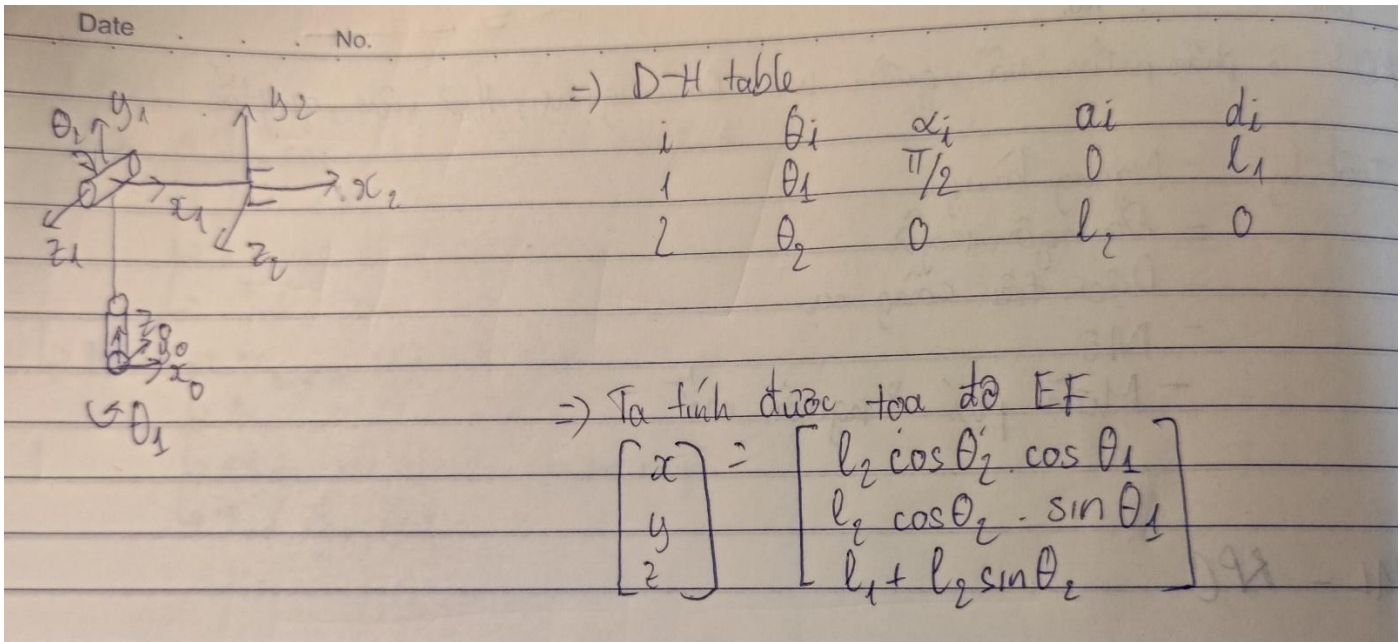 Date
No.
θ₂ y₁ y₂
x₁ x₂
z₁ z₂
z₀
y₀
x₀
θ₁
=) D-H table
i θi αi ai di
1 θ₁ π/2 0 l₁
2 θ₂ 0 l₂ 0
=) Ta tính được tọa độ EF
[x] = [l₂ cosθ₂ . cos θ₁]
[y] [l₂ cosθ₂ . sin θ₁]
[z] [l₁ + l₂ sinθ₂]